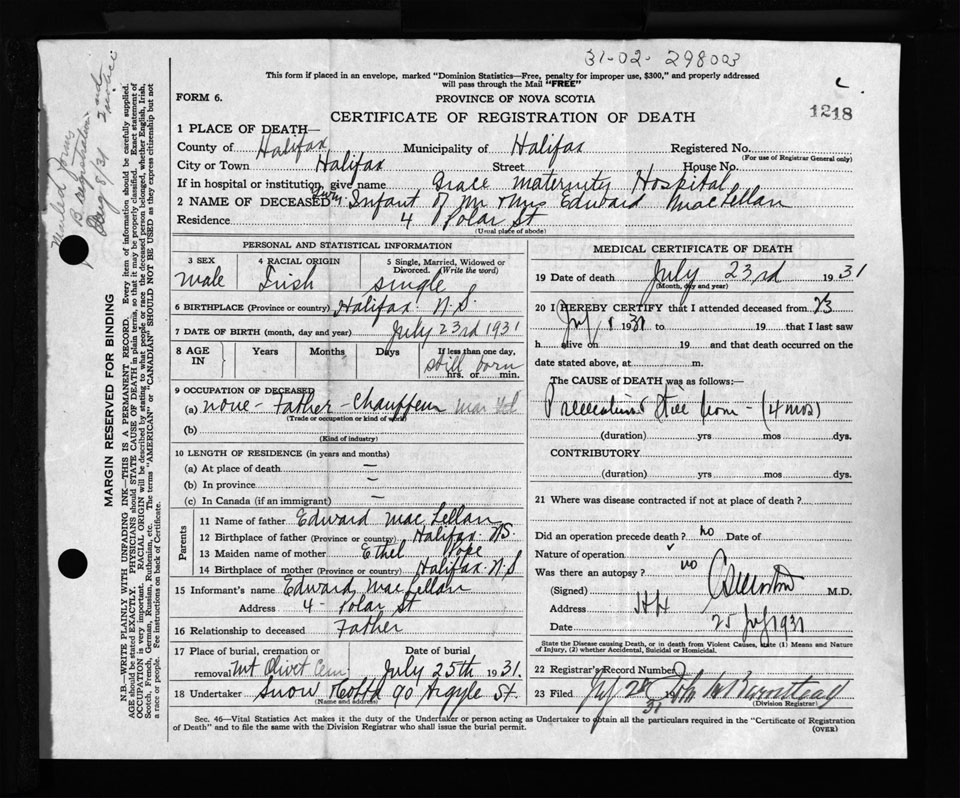 31-02-298003
This form if placed in an envelope, marked "Dominion Statistics—Free, penalty for improper use, $300," and properly addressed
will pass through the Mail "FREE"
FORM 6.
PROVINCE OF NOVA SCOTIA
1218
CERTIFICATE OF REGISTRATION OF DEATH
1 PLACE OF DEATH—
County of Halifax Municipality of Halifax Registered No.
(For use of Registrar General only)
City or Town Halifax Street House No.
If in hospital or institution, give name Grace Maternity Hospital
2 NAME OF DECEASED Infant of Mr & Mrs Edward MacLellan
Residence 4 Polar St
(Usual place of abode)
PERSONAL AND STATISTICAL INFORMATION
3 SEX
male
4 RACIAL ORIGIN
Irish
5 Single, Married, Widowed or
Divorced. (Write the word)
single
6 BIRTHPLACE (Province or country) Halifax N.S.
7 DATE OF BIRTH (month, day and year) July 23rd 1931
8 AGE
IN
Years
Months
Days
If less than one day,
still born
hrs. or min.
9 OCCUPATION OF DECEASED
(a) none - Father - Chauffeur
(Trade or occupation or kind of work)
(b)
(Kind of industry)
10 LENGTH OF RESIDENCE (in years and months)
(a) At place of death —
(b) In province —
(c) In Canada (if an immigrant) —
Parents
11 Name of father Edward MacLellan
12 Birthplace of father (Province or country) Halifax N.S.
13 Maiden name of mother Ethel Pope
14 Birthplace of mother (Province or country) Halifax N.S
15 Informant's name Edward MacLellan
Address 4 - Polar St
16 Relationship to deceased Father
17 Place of burial, cremation or
removal Mt Olivet Cem
Date of burial
July 25th 1931.
18 Undertaker Snow & Co Ltd 90 Argyle St.
(Name and address)
MEDICAL CERTIFICATE OF DEATH
19 Date of death July 23rd 1931
(Month, day and year)
20 I HEREBY CERTIFY that I attended deceased from 23
July 1931 to 19 that I last saw
h alive on 19 and that death occurred on the
date stated above, at m.
The CAUSE of DEATH was as follows:—
Still born - (4 mos)
(duration) yrs mos dys.
CONTRIBUTORY
(duration) yrs mos dys.
21 Where was disease contracted if not at place of death?
Did an operation precede death? no Date of
Nature of operation
Was there an autopsy? no
(Signed) M.D.
Address Hfx
Date 25 July 1931
State the Disease causing Death, or in death from Violent Causes, state (1) Means and
Nature of Injury, (2) whether Accidental, Suicidal or Homicidal.
22 Registrar's Record Number
23 Filed
31
(Division Registrar)
Sec. 46—Vital Statistics Act makes it the duty of the Undertaker or person acting as Undertaker to obtain all the particulars required in the "Certificate of Registration
of Death" and to file the same with the Division Registrar who shall issue the burial permit.
(OVER)
MARGIN RESERVED FOR BINDING
N.B.—WRITE PLAINLY WITH UNFADING INK—THIS IS A PERMANENT RECORD. Every item of information should be carefully supplied.
AGE should be stated EXACTLY. PHYSICIANS should STATE CAUSE OF DEATH in plain terms, so that it may be properly classified. Exact statement of
OCCUPATION is very important. RACIAL ORIGIN will be described by stating to what people or race the deceased person belonged, whether English, Irish,
Scotch, French, German, Russian, Ruthenian, etc. The terms "AMERICAN" or "CANADIAN" SHOULD NOT BE USED as they express citizenship but not
a race or people. See instructions on back of Certificate.